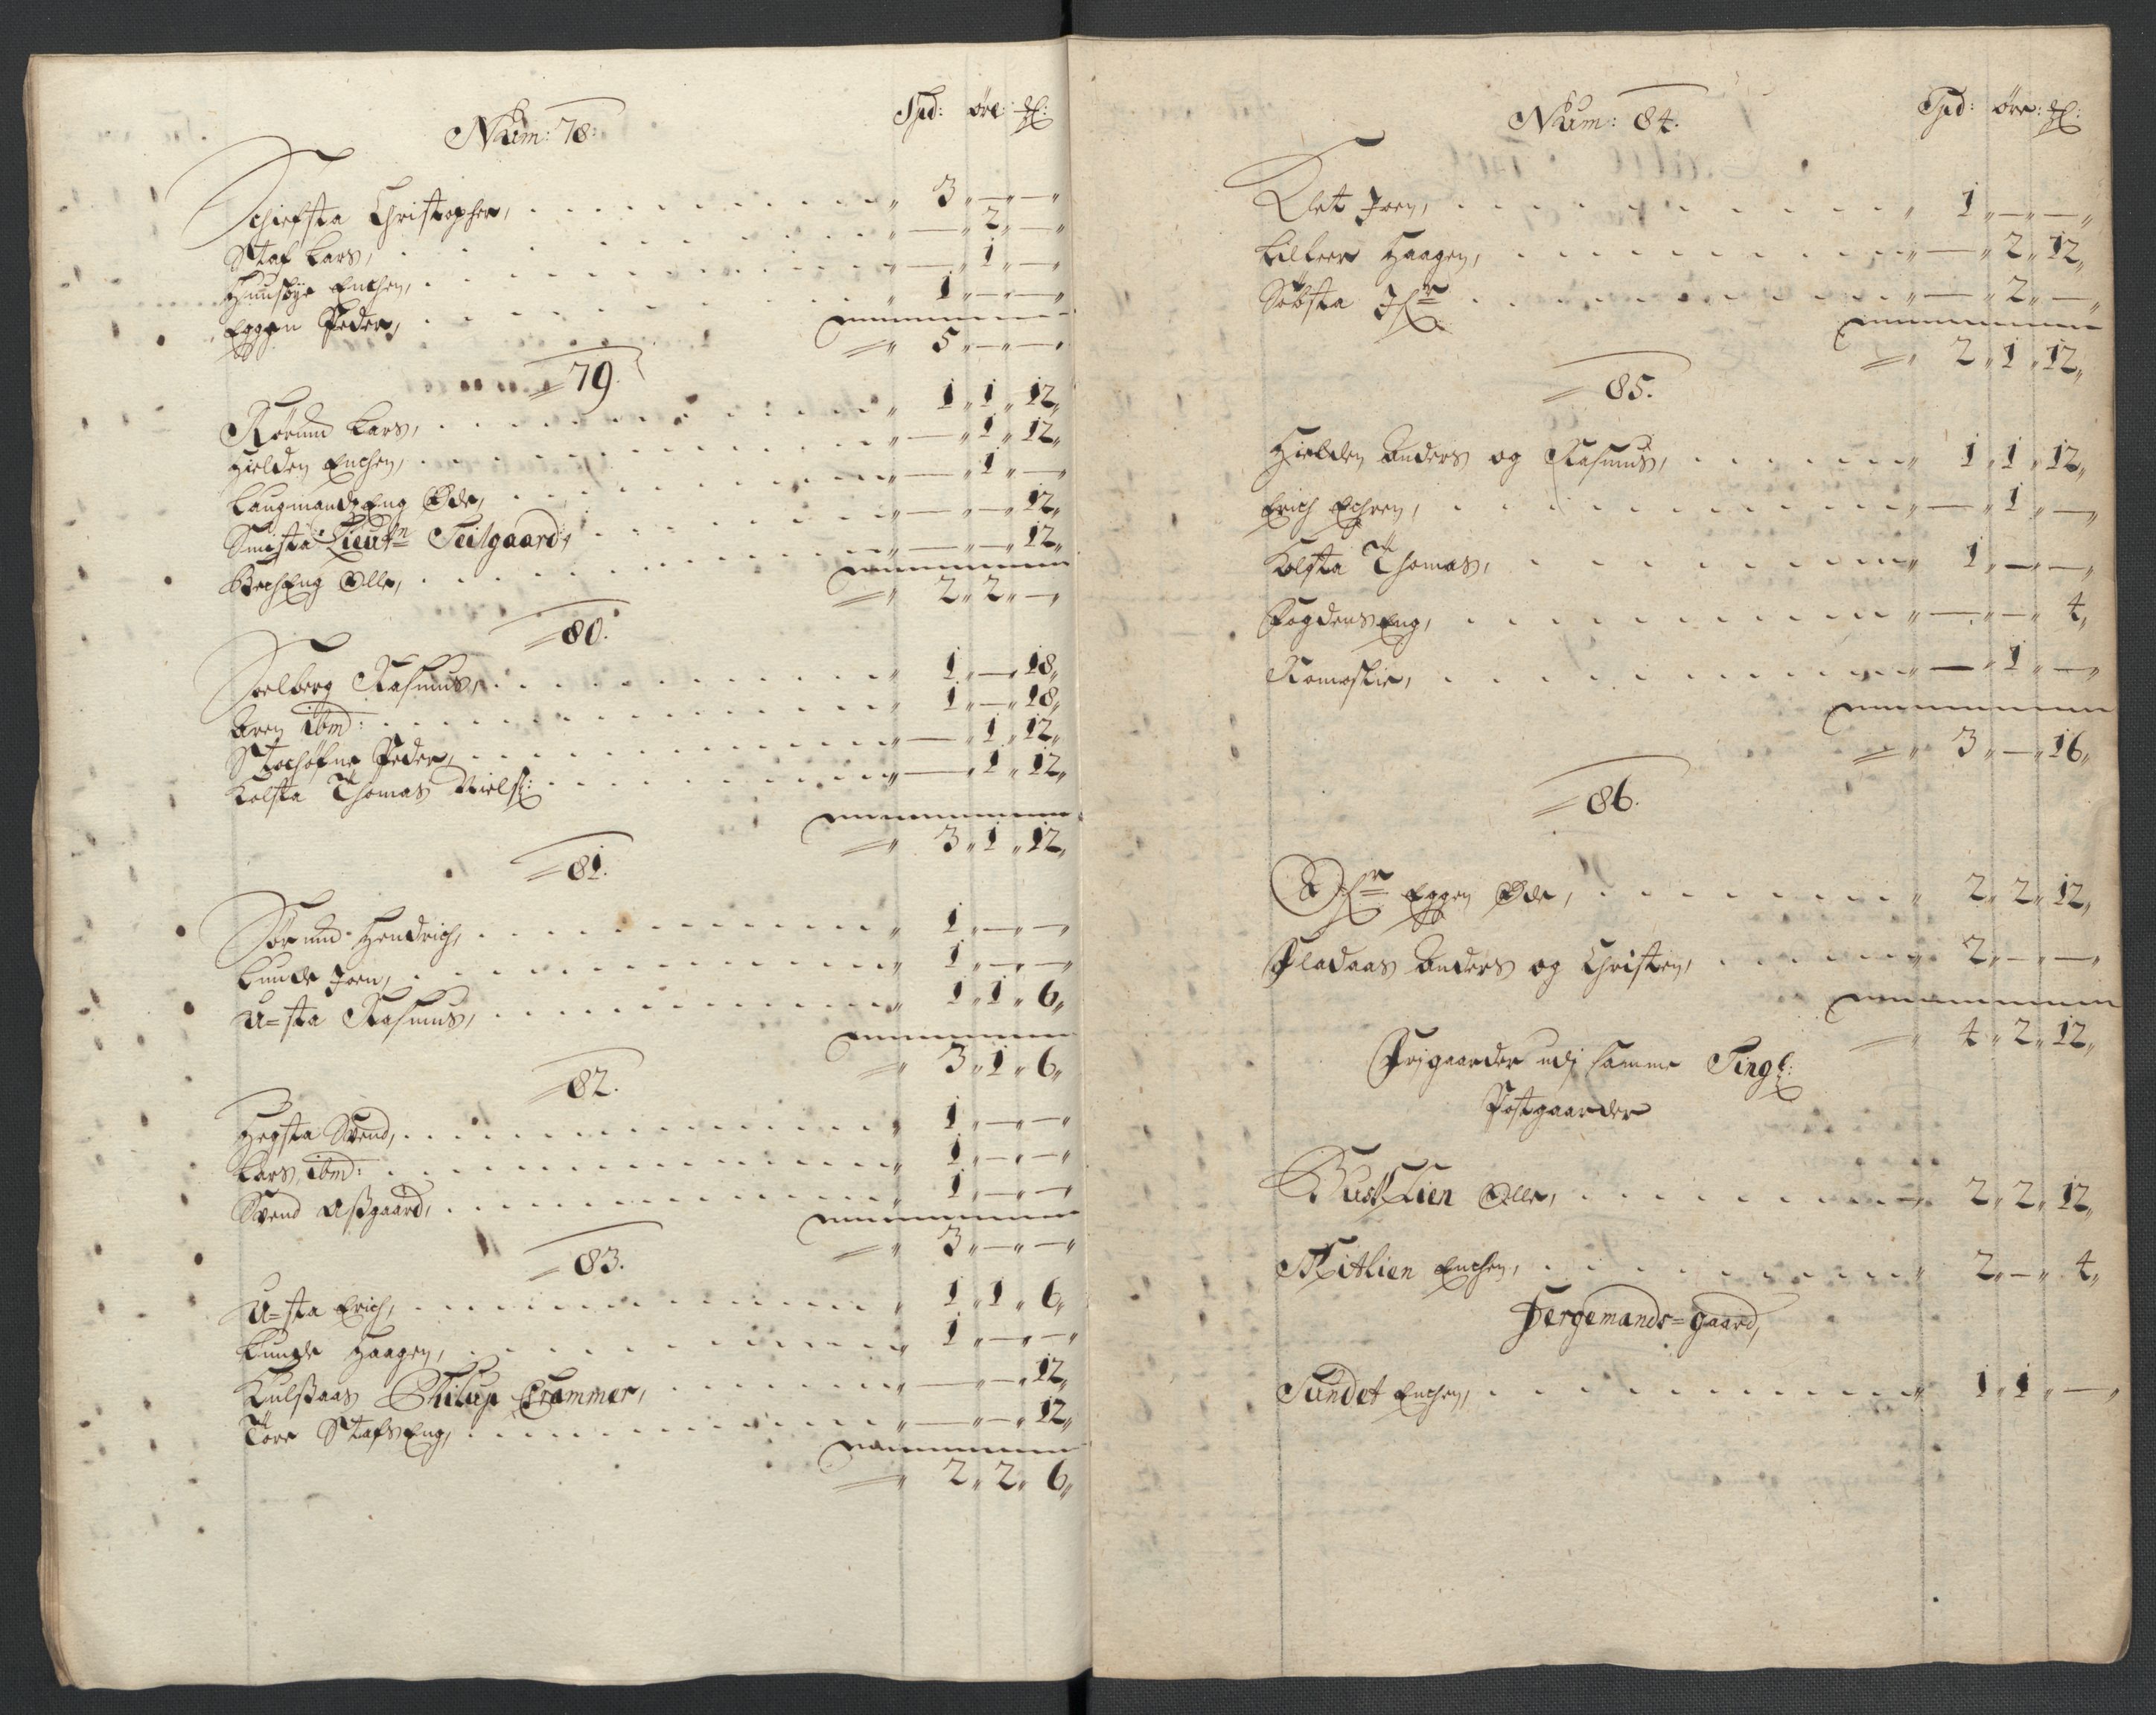 Num: 78: Spd: øre: ꝝ:
Schiefsta Christopher, 3 „ — „ —
Staf Lars, — „ 2 „ —
Huusbye Enchen, — „ 1 „ —
Eggen Peder, 1 „ — „ —
5 „ — „ —
79.
Rørum Lars, 1 „ 1 „ 12
Hielden Enchen, — „ 1 „ 12
Laugmands Eng Øde, — „ 1 „ —
Smista Lieutn Teilgaard, — „ — „ 12
Bech Eng Olle, — „ — „ 12
2 „ 2 „ —
80.
Soelberg Rasmus, 1 „ — „ 18
Aren ibm: 1 „ — „ 18
Stochøfne Peder, — „ 1 „ 12
Kolsta Thomas Niels: — „ 1 „ 12
3 „ 1 „ 12
81.
Sørum Hendrich, 1 „ — „ —
Lunde Joen, 1 „ — „ —
U=sta Rasmus, 1 „ 1 „ 6
3 „ 1 „ 6
82.
Hegsta Svend, 1 „ — „ —
Lars, ibm: 1 „ — „ —
Svend Aßgaard, 1 „ — „ —
3 „ — „ —
83.
U=sta Erich, 1 „ 1 „ 6
Lunde Haagen, 1 „ — „ —
Kulßaas Philup Crammer, — „ — „ 12
Tore Stafs Eng, — „ — „ 12
2 „ 2 „ 6
Num: 84. Spd: øre: ꝝ:
Klet Joen, 1 „ — „ —
Lilleer Haagen, — „ 2 „ 12
Søbsta Hr — „ 2 „ —
2 „ 1 „ 12
85.
Hielden Anders og Rasmus, 1 „ 1 „ 12
Erich Echren, — „ 1 „ —
Kolsta Thomas, 1 „ — „ —
Fogdens Eng, — „ — „ 4
Romoslie, — „ 1 „ —
3 „ — „ 16
86.
Hr Eggen Øde, 2 „ 2 „ 12
Fladaas Anders og Christen, 2 „ — „ —
4 „ 2 „ 12
Frigaarder udj samme Tingl:
Postgaarder
Busklien Olle, 2 „ 2 „ 12
Mitlien Enchen, 2 „ — „ 4
Fergemands=gaard,
Sundet Enchen, 1 „ 1 „ —